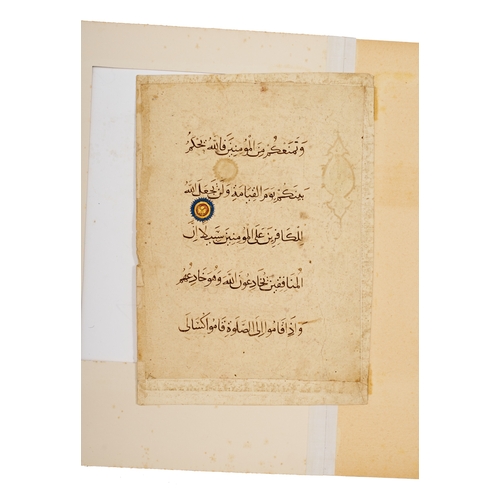 وَنَمْنَعْكُمْ مِنَ الْمُؤْمِنِينَ فَاللَّهُ يَحْكُمُ
بَيْنَكُمْ يَوْمَ الْقِيَامَةِ وَلَنْ يَجْعَلَ اللَّهُ
لِلْكَافِرِينَ عَلَى الْمُؤْمِنِينَ سَبِيلًا إِنَّ
الْمُنَافِقِينَ يُخَادِعُونَ اللَّهَ وَهُوَ خَادِعُهُمْ
وَإِذَا قَامُوا إِلَى الصَّلَوةِ قَامُوا كُسَالَى